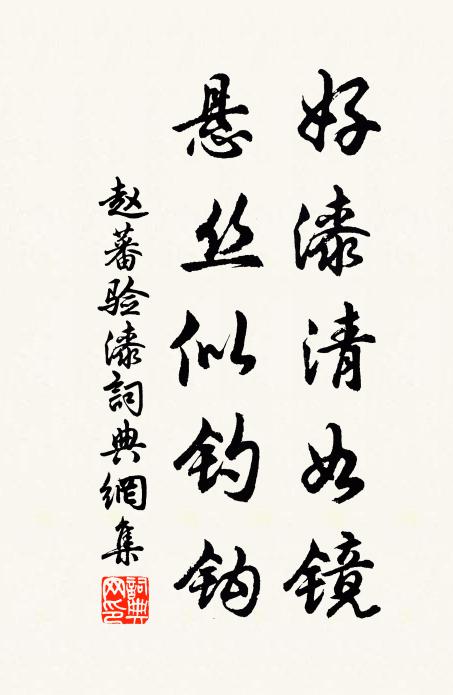 好漆清如镜
悬丝似钓钩
赵蕃验漆詞典網集
詞典网印